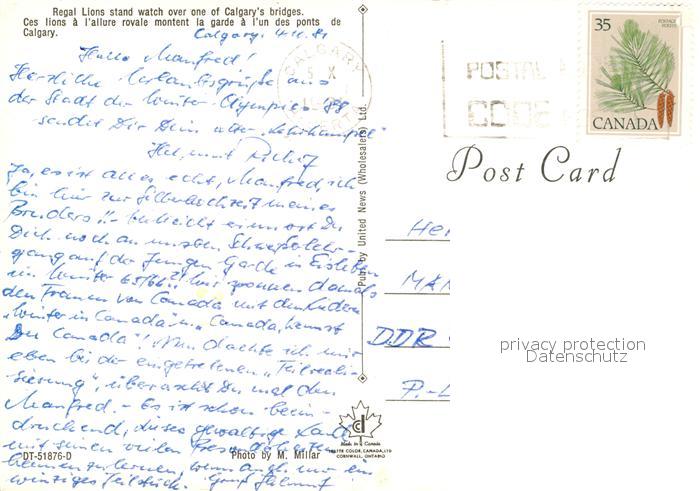 Regal Lions stand watch over one of Calgary's bridges.
Ces lions à l'allure royale montent la garde à l'un des ponts de
Calgary.
Calgary, 4.10.81
Hallo Manfred!
Herzliche Urlaubsgrüße aus
der Stadt der Winter-Olympics 88
sendet Dir Dein alter
Helmut
Ja, es ist alles echt, Manfred, ich
bin hier zur Silberhochzeit meines
Bruders!! - vielleicht erinnerst Du
Dich noch an unseren
auf der Jungen Garde in
im Winter 65/66?! Wir damals
den Traum von Canada mit den Liedern
"Winter in Canada" u. "Canada, kennst
Du Canada"! Nun dachte ich mir
eben bei der eingetretenen "Teilreali-
sierung", überraschst Du mal den
Manfred. - Es ist schon beein-
druckend, dieses gewaltige Land
mit seinen vielen
kennen zu lernen, wenn auch nur ein
winziges Teilstück. Gruß Helmut
DT-51876-D
Photo by M. Millar
Pub. by United News (Wholesalers) Ltd.
CALGARY
X
POSTAL
CODE
35
POSTAGE
POSTES
CANADA
Post Card
He
MAN
DDR
P.-L
privacy protection
Datenschutz
Made in Canada
CORNWALL, ONTARIO